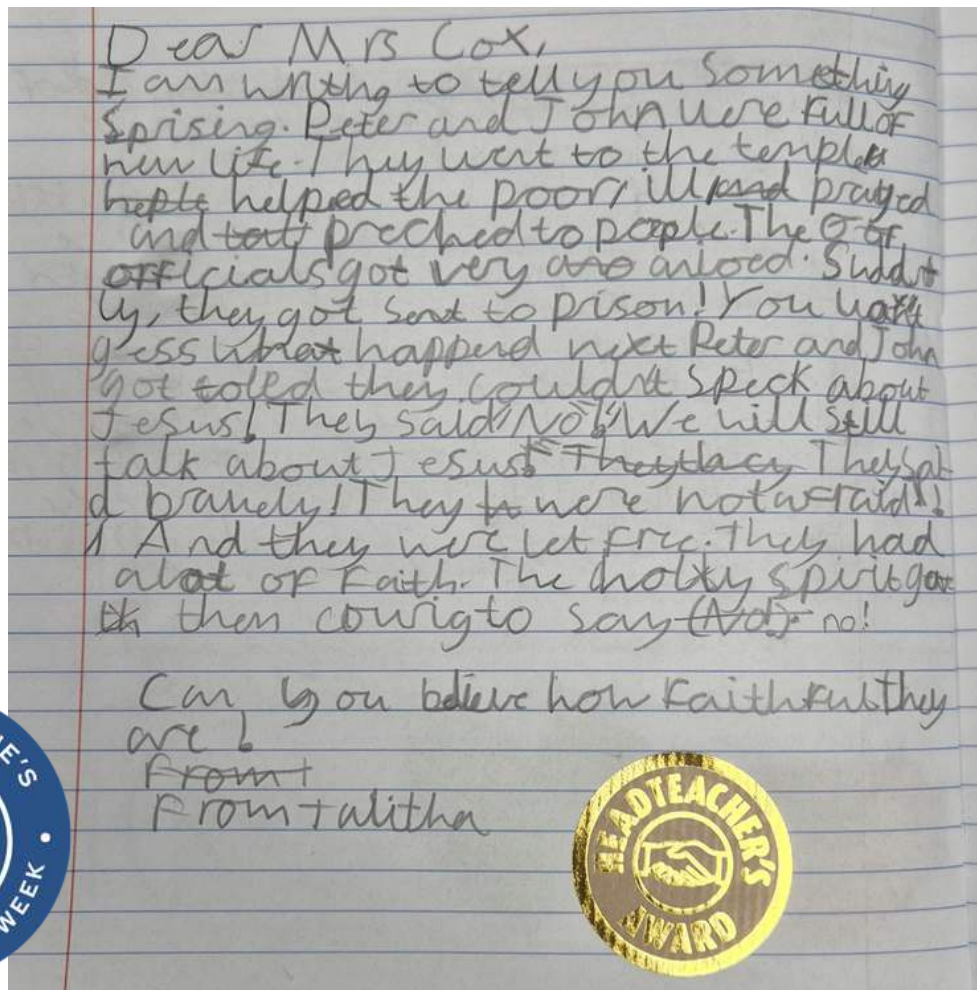 Dear Mrs Cox,
I am writhg to tell you Something
Sprising. Peter and John were full of
new life. They went to the temple
helped the poor, ill and prayed
and preched to people. The
officials got very anloed. Suddnt
ly, they got sent to prison! You
gess what happend next Peter and John
got toled they couldn't speck about
Jesus! They said "No!" We will still
talk about Jesus! They sai
d bravely! They were not afraid!!
And they were let free. They had
alot of faith. The holy spirit gave
them courig to say no!
Can you believe how faithful they
are!
From
From talitha
E'S
WEEK •
HEADTEACHER'S
AWARD